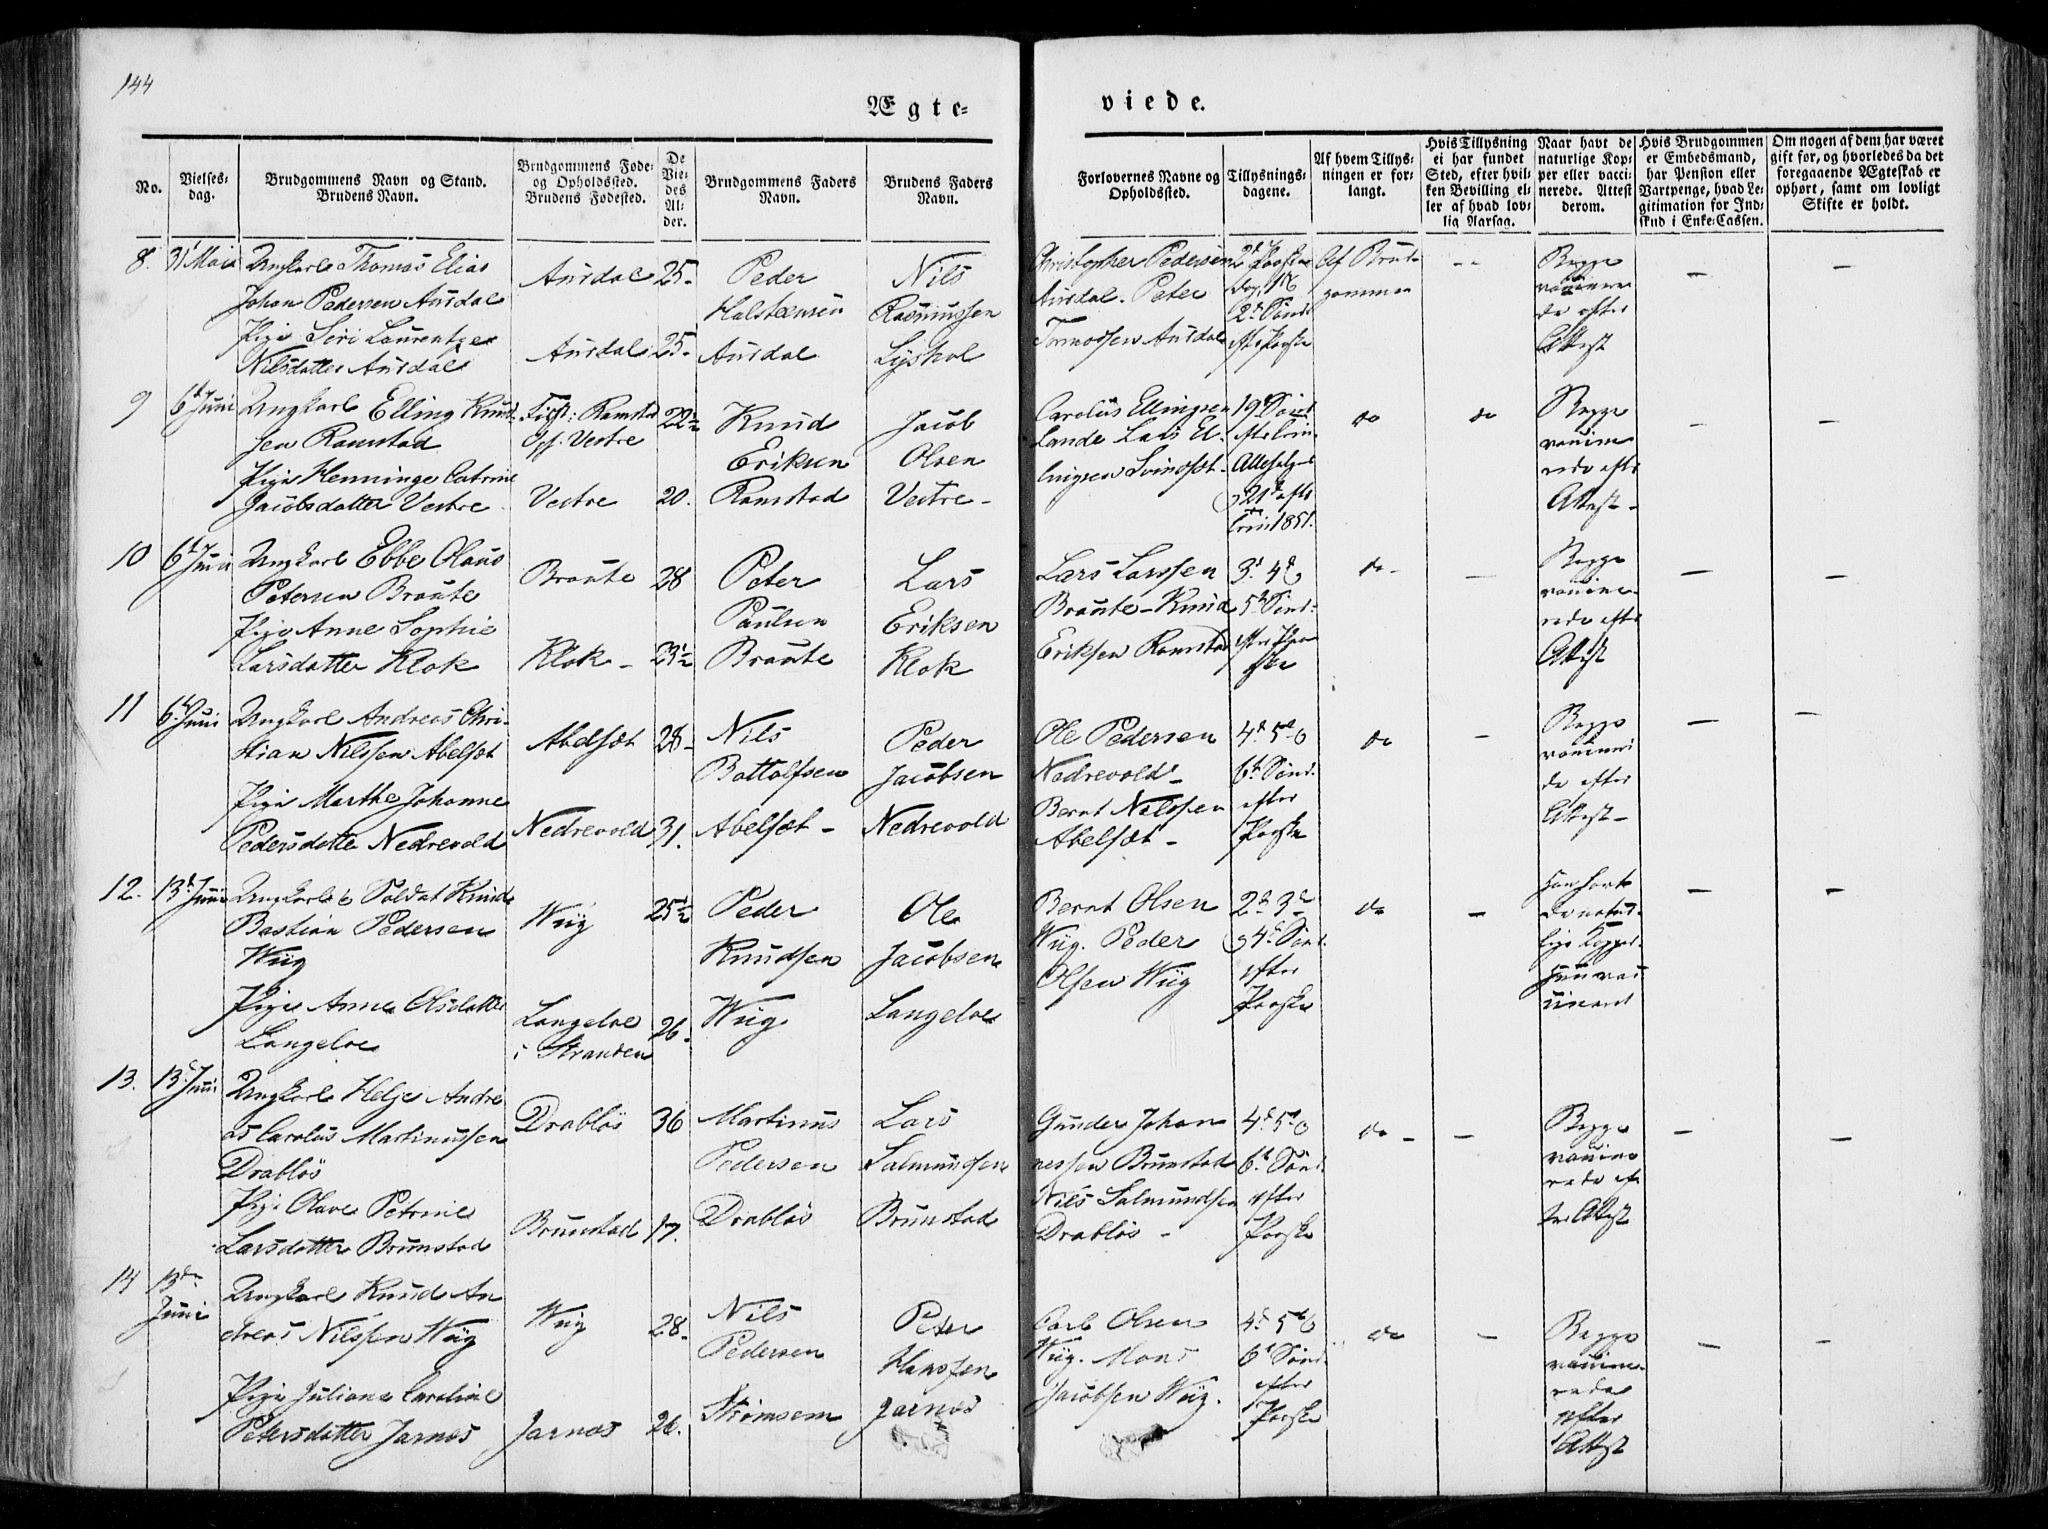 144
Ægte=
viede.
No.
Vielses=
dag.
Brudgommens Navn og Stand.
Brudens Navn.
Brudgommens Føde=
og Opholdssted.
Brudens Fødested.
De
Vie=
des
Al=
der.
Brudgommens Faders
Navn.
Brudens Faders
Navn.
Forlovernes Navne og
Opholdssted.
Tillysnings=
dagene.
Af hvem Tillys=
ningen er for=
langt.
Hvis Tillysning
ei har fundet
Sted, efter hvil=
ken Bevilling el=
ler af hvad lov=
lig Aarsag.
Naar havt de
naturlige Kop=
per eller vacci=
nerede. Attest
derom.
Hvis Brudgommen
er Embedsmand,
har Pension eller
Vartpenge, hvad Le=
gitimation for Ind=
skud i Enke=Cassen.
Om nogen af dem har været
gift før, og hvorledes da det
foregaaende Ægteskab er
ophørt, samt om lovligt
Skifte er holdt.
8. 31 Mai Ungkarl Thomas Elias
Johan Pedersen Aursdal
Pige Seri Laurentze
Nilsdatter Aursdal
Aursdal 25
Aursdal 25
Peder
Halsteensen
Aursdal
Nils
Rasmussen
Lyshol
Christopher Pedersen
Aursdal. Peter
Tormodsen Aursdal
2d Paaske
Dag, 1 &
2d Sønd:
efter Paaske
Af Brud-
gommen
Begge
vaccinere
de efter
Attest
9 6d Juni Ungkarl Elling Knud
sen Ramstad
Pige Henninge Catrine
Jacobsdatter Vestre
Fødst: Ramstad
Oph. Vestre
Vestre
22½
20.
Knud
Eriksen
Ramstad
Jacob
Olsen
Vestre
Carolus Ellingsen
Lande Lars El-
lingsen Svindset
19d Sønd
efter Trin.
Allehelgen
& 21d efter
Trin 1851.
do
do
Begge
vaccine
rede efter
Attest
10 6d Juni Ungkarl Ebbe Olaus
Petersen Braute
Pige Anne Sophie
Larsdatter Klok
Braute 28
Klok 23½
Peter
Paulsen
Braute
Lars
Eriksen
Klok
Lars Larssen
Braute - Knud
Eriksen Ramstad
3d 4d &
5d Sønd:
efter Paa
ske
do
Begge
vaccine-
rede efter
Attest
11 6d Juni Ungkarl Andreas Chri-
stian Nilssen Abelset
Pige Marthe Johanne
Pedersdatter Nedrevold
Abelset 28
Nedrevold 31.
Nils
Bottolfsen
Abelset
Peder
Jacobsen
Nedrevold
Ole Pedersen
Nedrevold
Bernt Nilssen
Abelset
4d 5d &
6d Sønd.
efter
Paaske
do
Begge
vaccinere
de efter
Attest
12. 13d Juni Ungkarl & Soldat Knud
Bastian Pedersen
Wiig
Pige Anne Olsdatter
Langeloe
Wiig 25½
Langeloe
i Stranden 26
Peder
Knudsen
Wiig
Ole
Jacobsen
Langeloe
Bernt Olsen
Wiig. Peder
Olsen Wiig
2d 3d
& 4d Sønd.
efter
Paaske
do
Han havt
de natur-
lige Kopper.
Hun vac
cineret
13. 13d Juni Ungkarl Helje Andre
as Carolus Martinussen
Drabløs
Pige Olave Petrine
Larsdatter Brunstad
Drabløs 36
Brunstad 17.
Martinus
Pedersen
Drabløs
Lars
Salmundsen
Brunstad
Gunder Johan
nessen Brunstad
Nils Salmundsen
Drabløs
4d 5d &
6d Sønd.
efter
Paaske
do
Begge
vaccine
rede ef
ter Attest
14 13de
Juni
Ungkarl Knud An
dreas Nilssen Wiig
Pige Juliane Caroline
Petersdatter Jarnes
Wiig 28.
Jarnes 26.
Nils
Pedersen
Strømsem
Peter
Hanssen
Jarnes
Carl Olsen
Wiig. Mons
Jacobsen Wiig.
4d 5d &
6d Sønd
efter
Paaske
do
Begge
vaccine-
rede
efter
Attest